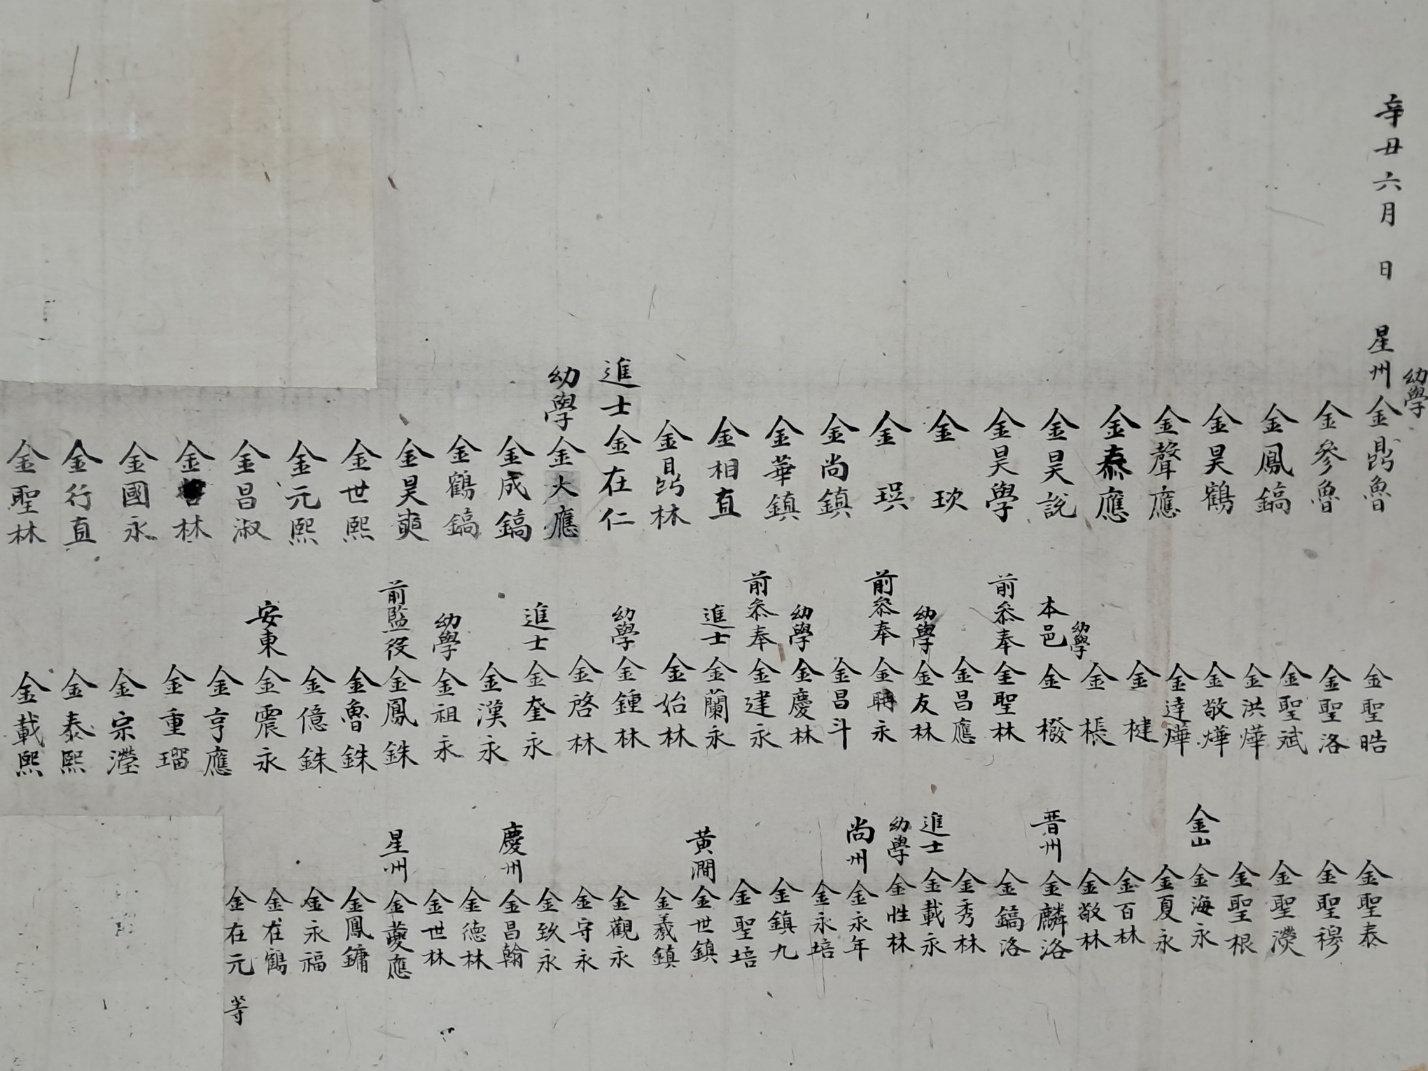 辛丑六月 日 星州幼學金鼎魯
金參魯
金鳳鎬
金昊鶴
金聲應
金泰應
金昊說
金昊學
金 玖
金 珙
金尚鎮
金華鎮
金相直
金晶林
進士金在仁
幼學金大應
金成鎬
金鶴鎬
金昊奭
金世熙
金元熙
金昌淑
金 林
金國永
金行直
金聖林
金聖晧
金聖洛
金聖斌
金洪燁
金敬燁
金達燁
金 楗
金 棖
本邑幼學金 橃
前參奉金聖林
金昌應
幼學金友林
前參奉金聘永
金昌斗
幼學金慶林
前參奉金建永
進士金蘭永
金始林
幼學金鍾林
金啓林
進士金奎永
金漢永
幼學金祖永
前監役金鳳銖
金魯銖
金億銖
安東金震永
金亨應
金重瑠
金宗瀅
金泰熙
金載熙
金聖泰
金聖穆
金聖濩
金聖根
金山金海永
金夏永
金百林
金敬林
晋州金麟洛
金鎬洛
金秀林
進士金載永
幼學金性林
尚州金永年
金永培
金鎮九
金聖培
黃澗金世鎮
金羲鎮
金觀永
金守永
金致永
慶州金昌翰
金德林
金世林
星州金夔應
金鳳鏞
金永福
金在鶴
金在元 等